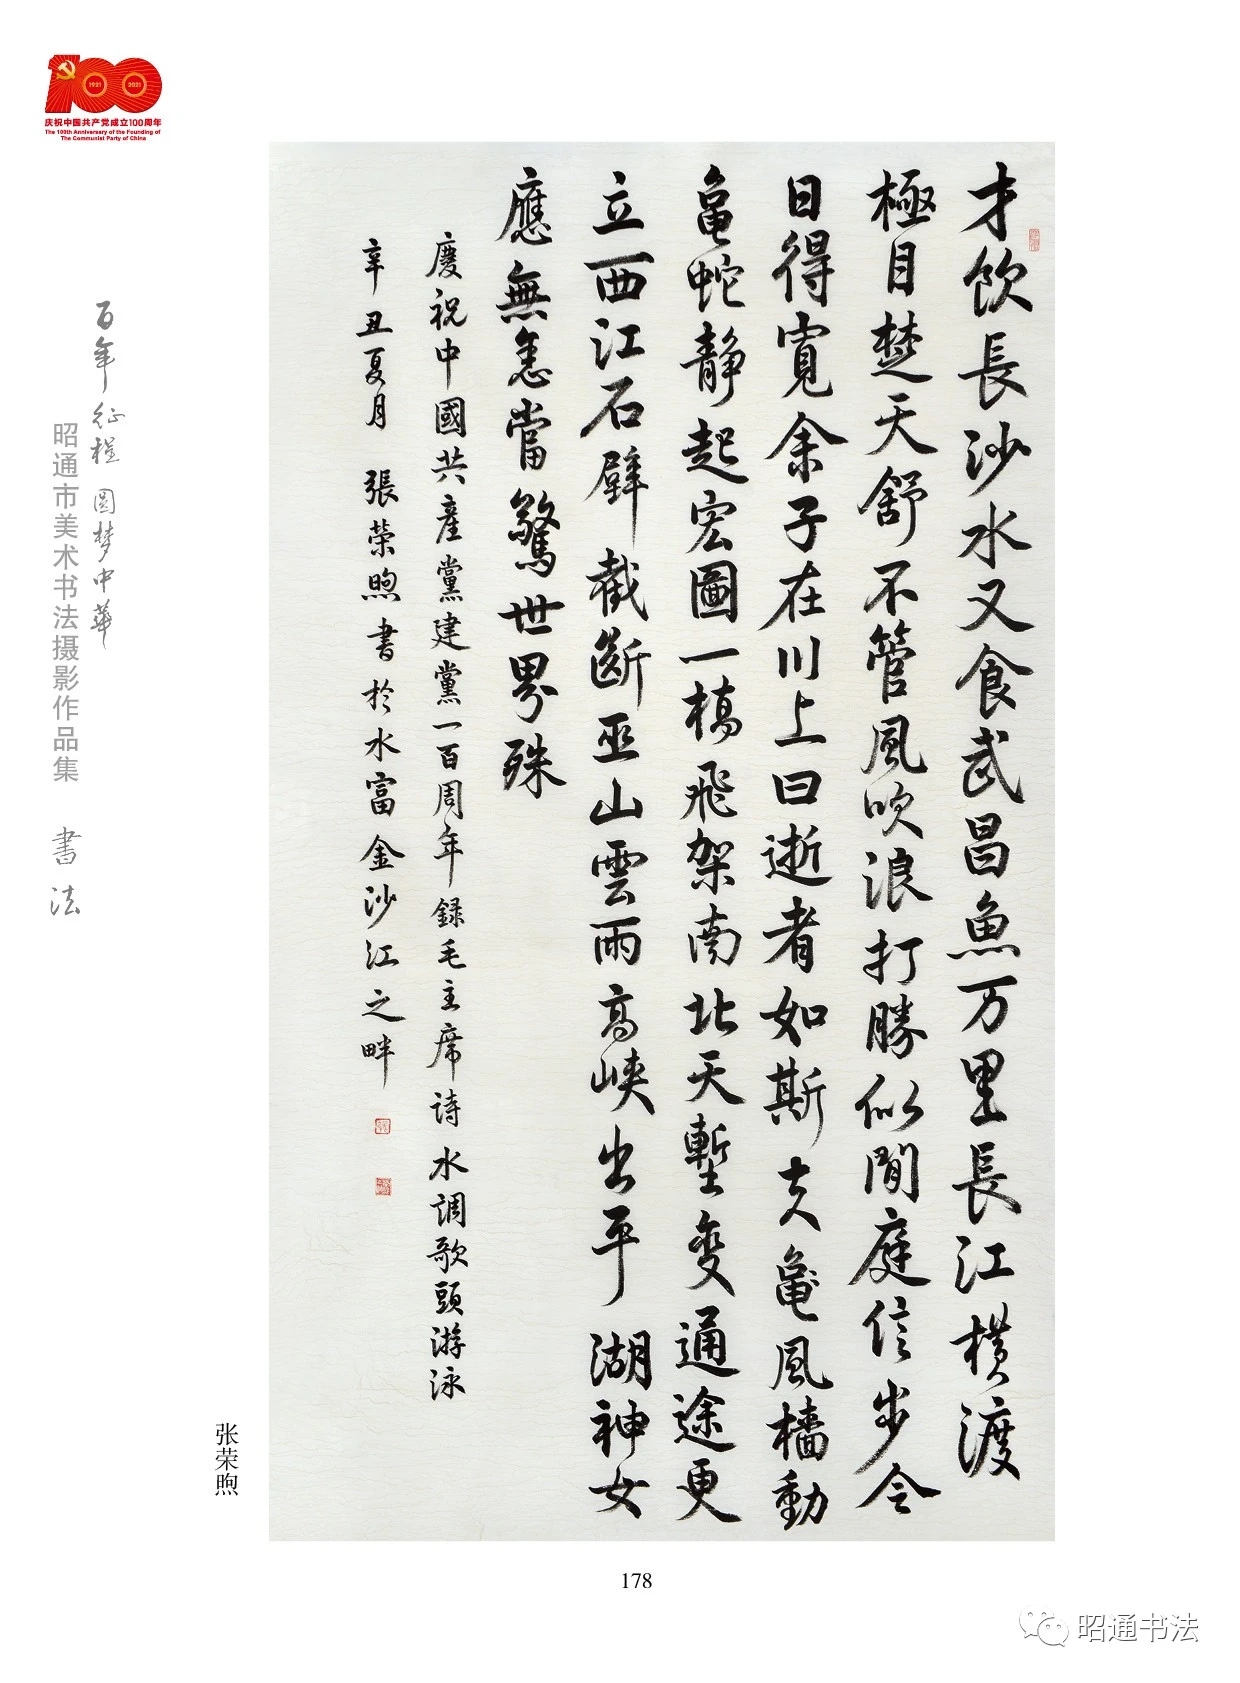 100
1921 2021
庆祝中国共产党成立100周年
The 100th Anniversary of the Founding of
The Communist Party of China
百年征程 圆梦中华
昭通市美术书法摄影作品集 書法
才飲長沙水又食武昌魚万里長江橫渡
極目楚天舒不管風吹浪打勝似閒庭信步今
日得寬余子在川上曰逝者如斯夫龜風檣動
龜蛇靜起宏圖一橋飛架南北天塹變通途更
立西江石壁截斷巫山雲雨高峽出平湖神女
應無恙當驚世界殊
慶祝中國共產黨建黨一百周年録毛主席詩水調歌頭游泳
辛丑夏月 張榮煦書於水富金沙江之畔
张荣煦
178
昭通书法